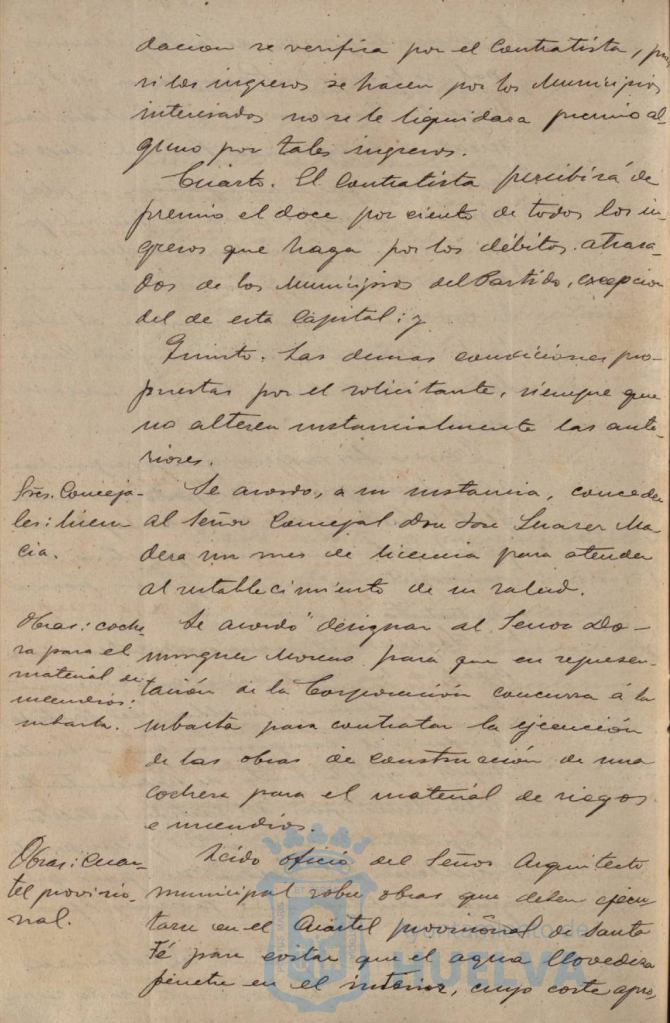 dacion se verifica por el Contratista, pues
si los ingresos se hacen por los Municipios
interesados no se le liquidara premio al-
guno por tales ingresos.
Cuarto. El Contratista percibirá de
premio el doce por ciento de todos los in-
gresos que haga por los débitos atrasa-
dos de los Municipios del Partido, excepcion
del de esta Capital; y
Quinto. Las demas condiciones pro-
puestas por el solicitante, siempre que
no alteren sustancialmente las ante-
riores.
Sres. Conceja-
les: licen-
cia.
Se acordo, a su instancia, conceder
al Señor Concejal Don José Suarez Ma-
dera un mes de licencia para atender
al restablecimiento de su salud.
Obras: coche-
ra para el
material de
incendios:
subasta.
Se acordó designar al Señor Do-
minguez Moreno para que en represen-
tación de la Corporación concurra á la
subasta para contratar la ejecución
de las obras de construcción de una
cochera para el material de riegos
e incendios.
Obras: Cuar-
tel provisio-
nal.
Leido oficio del Señor Arquitecto
municipal sobre obras que deben ejecu-
tarse en el Cuartel provisional de Santa
Fé para evitar que el agua llovediza
penetre en el interior, cuyo coste apro-
Ayuntamiento de
HUELVA